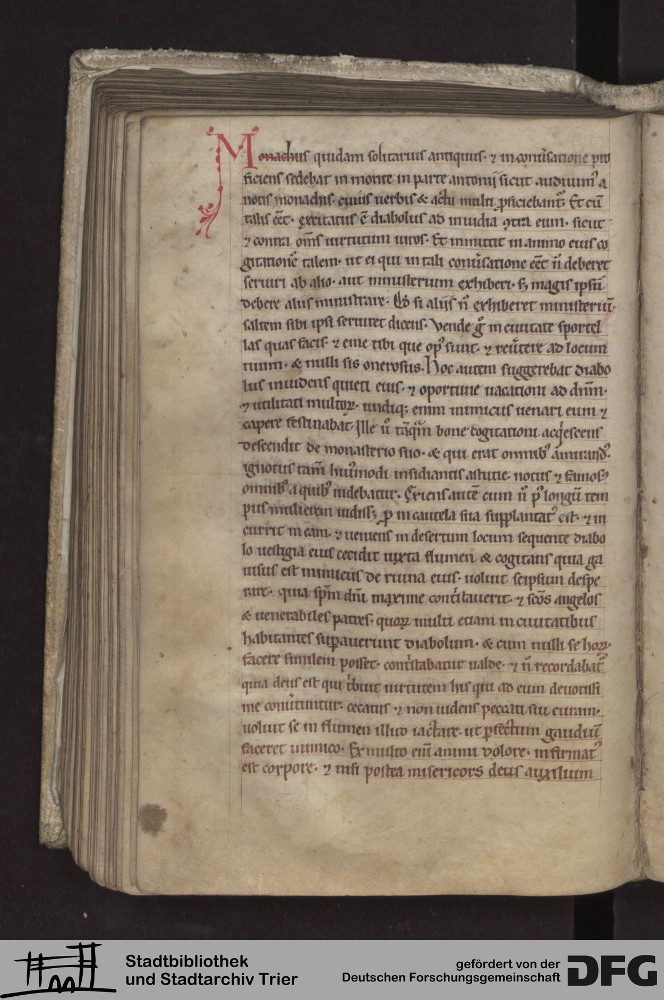 Monachus quidam solitarius antiquus. ⁊ in conuˀsatione pro
ficiens sedebat in monte in parte antonij sicut audiuimˀ a
notis monachis. cuius uerbis & actu multi ꝓficiebantˀ. Et cū
talis eēt. excitatus ē diabolus ad inuidiā ꝯtra eum. sicut
⁊ contra om̄s uirtutum uiros. Et inmittit in animo eius co
gitationē talem. ut ei qui in tali conuˀsatione eēt n̄ deberet
seruiri ab alio. aut ministerium exhiberi. sꝫ magis ipsū
debere aliis ministrare. Qđ si alijs n̄ exhiberet ministeriū.
saltem sibi ipsi seruiret dicens. Vende gͦ in ciuitate sportel
las quas facis. ⁊ eme tibi que opˀ sunt. ⁊ reuˀtere ad locum
tuum. & nulli sis onerosus. Hoc autem suggerebat diabo
lus inuidens quieti eius. ⁊ oportune uacationi ad dn̄m.
⁊ utilitati multoꝝ. undiqꝫ enim inimicus uenari eum ⁊
capere festinabat. Ille ū tāqͣm bone cogitationi acq̇escens
descendit de monasterio suo. & qui erat omnibˀ
ignotus tam̄ huiˀmodi insidiantis astutie. notus ⁊ famosˀ
omnibˀ a quibˀ uidebatur. Exiens autē cum n̄ pˀ longū tem
pus mulierem uidiss; ꝓ incautela sua supplantatˀ est. ⁊ in
currit in eam. ⁊ ueniens in desertum locum sequente diabo
lo uestigia eius cecidit iuxta flumen & cogitans quia ga
uisus est inimicus de ruina eius. uoluit seipsum despe
rare. quia sp̄m dn̄i maxime contˀstauerit. ⁊ sc̄os angelos
& uenerabiles patres. quoꝝ multi etiam in ciuitatibus
habitantes supauerunt diabolum. & cum nulli se hoꝝ
facere similem posset. contˀstabatur ualde. ⁊ n̄ recordabatˀ
quia deus est qui tˀbuit uirtutem his qui ad eum deuotissi
me conuˀtuntur. cecatus ⁊ non uidens peccati sui curam.
uoluit se in flumen illud iactare. ut ꝑfectum gaudiū
faceret inimico. Ex multo eni animi dolore. infirmatˀ
est corpore. ⁊ nisi postea misericors deus auxilium
Stadtbibliothek
und Stadtarchiv Trier
gefördert von der
Deutschen Forschungsgemeinschaft
DFG